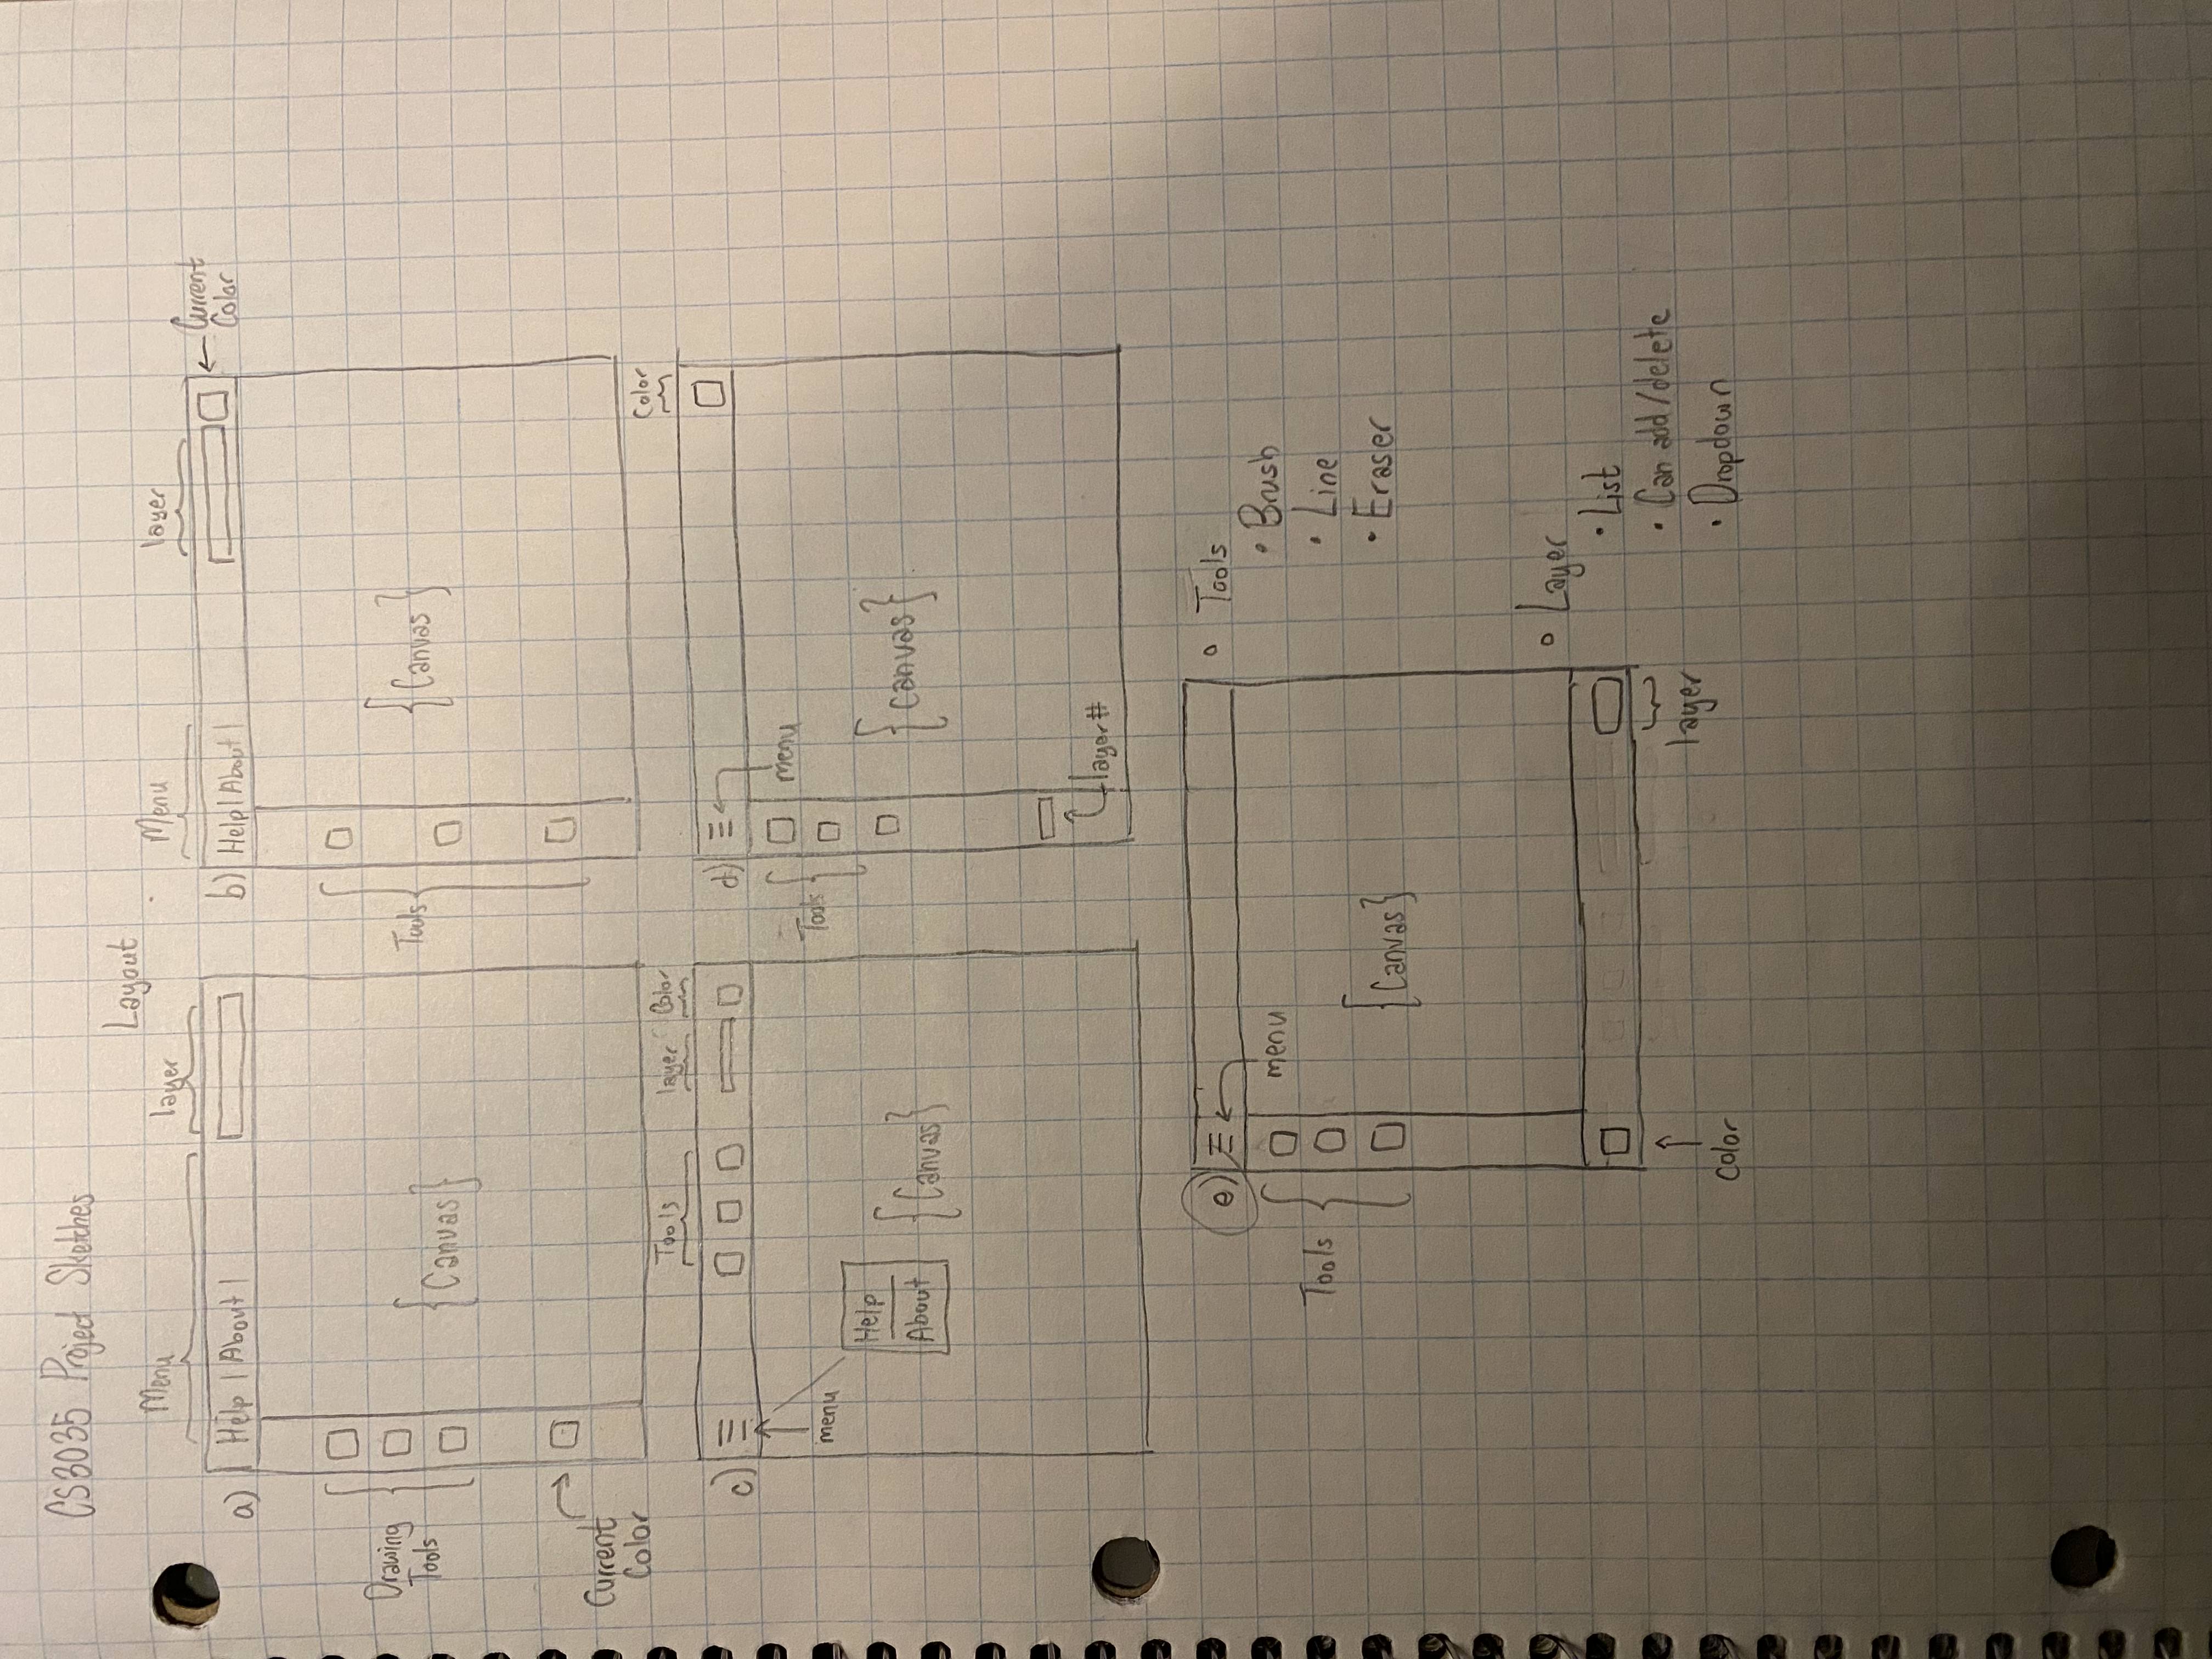 CS3035 Project Sketches
Layout
Menu
layer
a)
Help | About |
Drawing
Tools
{Canvas}
Current
Color
Menu
layer
Current
Color
b)
Help | About |
Tools
{Canvas}
Tools
layer
Color
c)
menu
Help
About
{Canvas}
Color
d)
menu
Tools
{Canvas}
layer#
e)
menu
Tools
{Canvas}
color
layer
Tools
• Brush
• Line
• Eraser
Layer
• List
• Can add/delete
• Dropdown